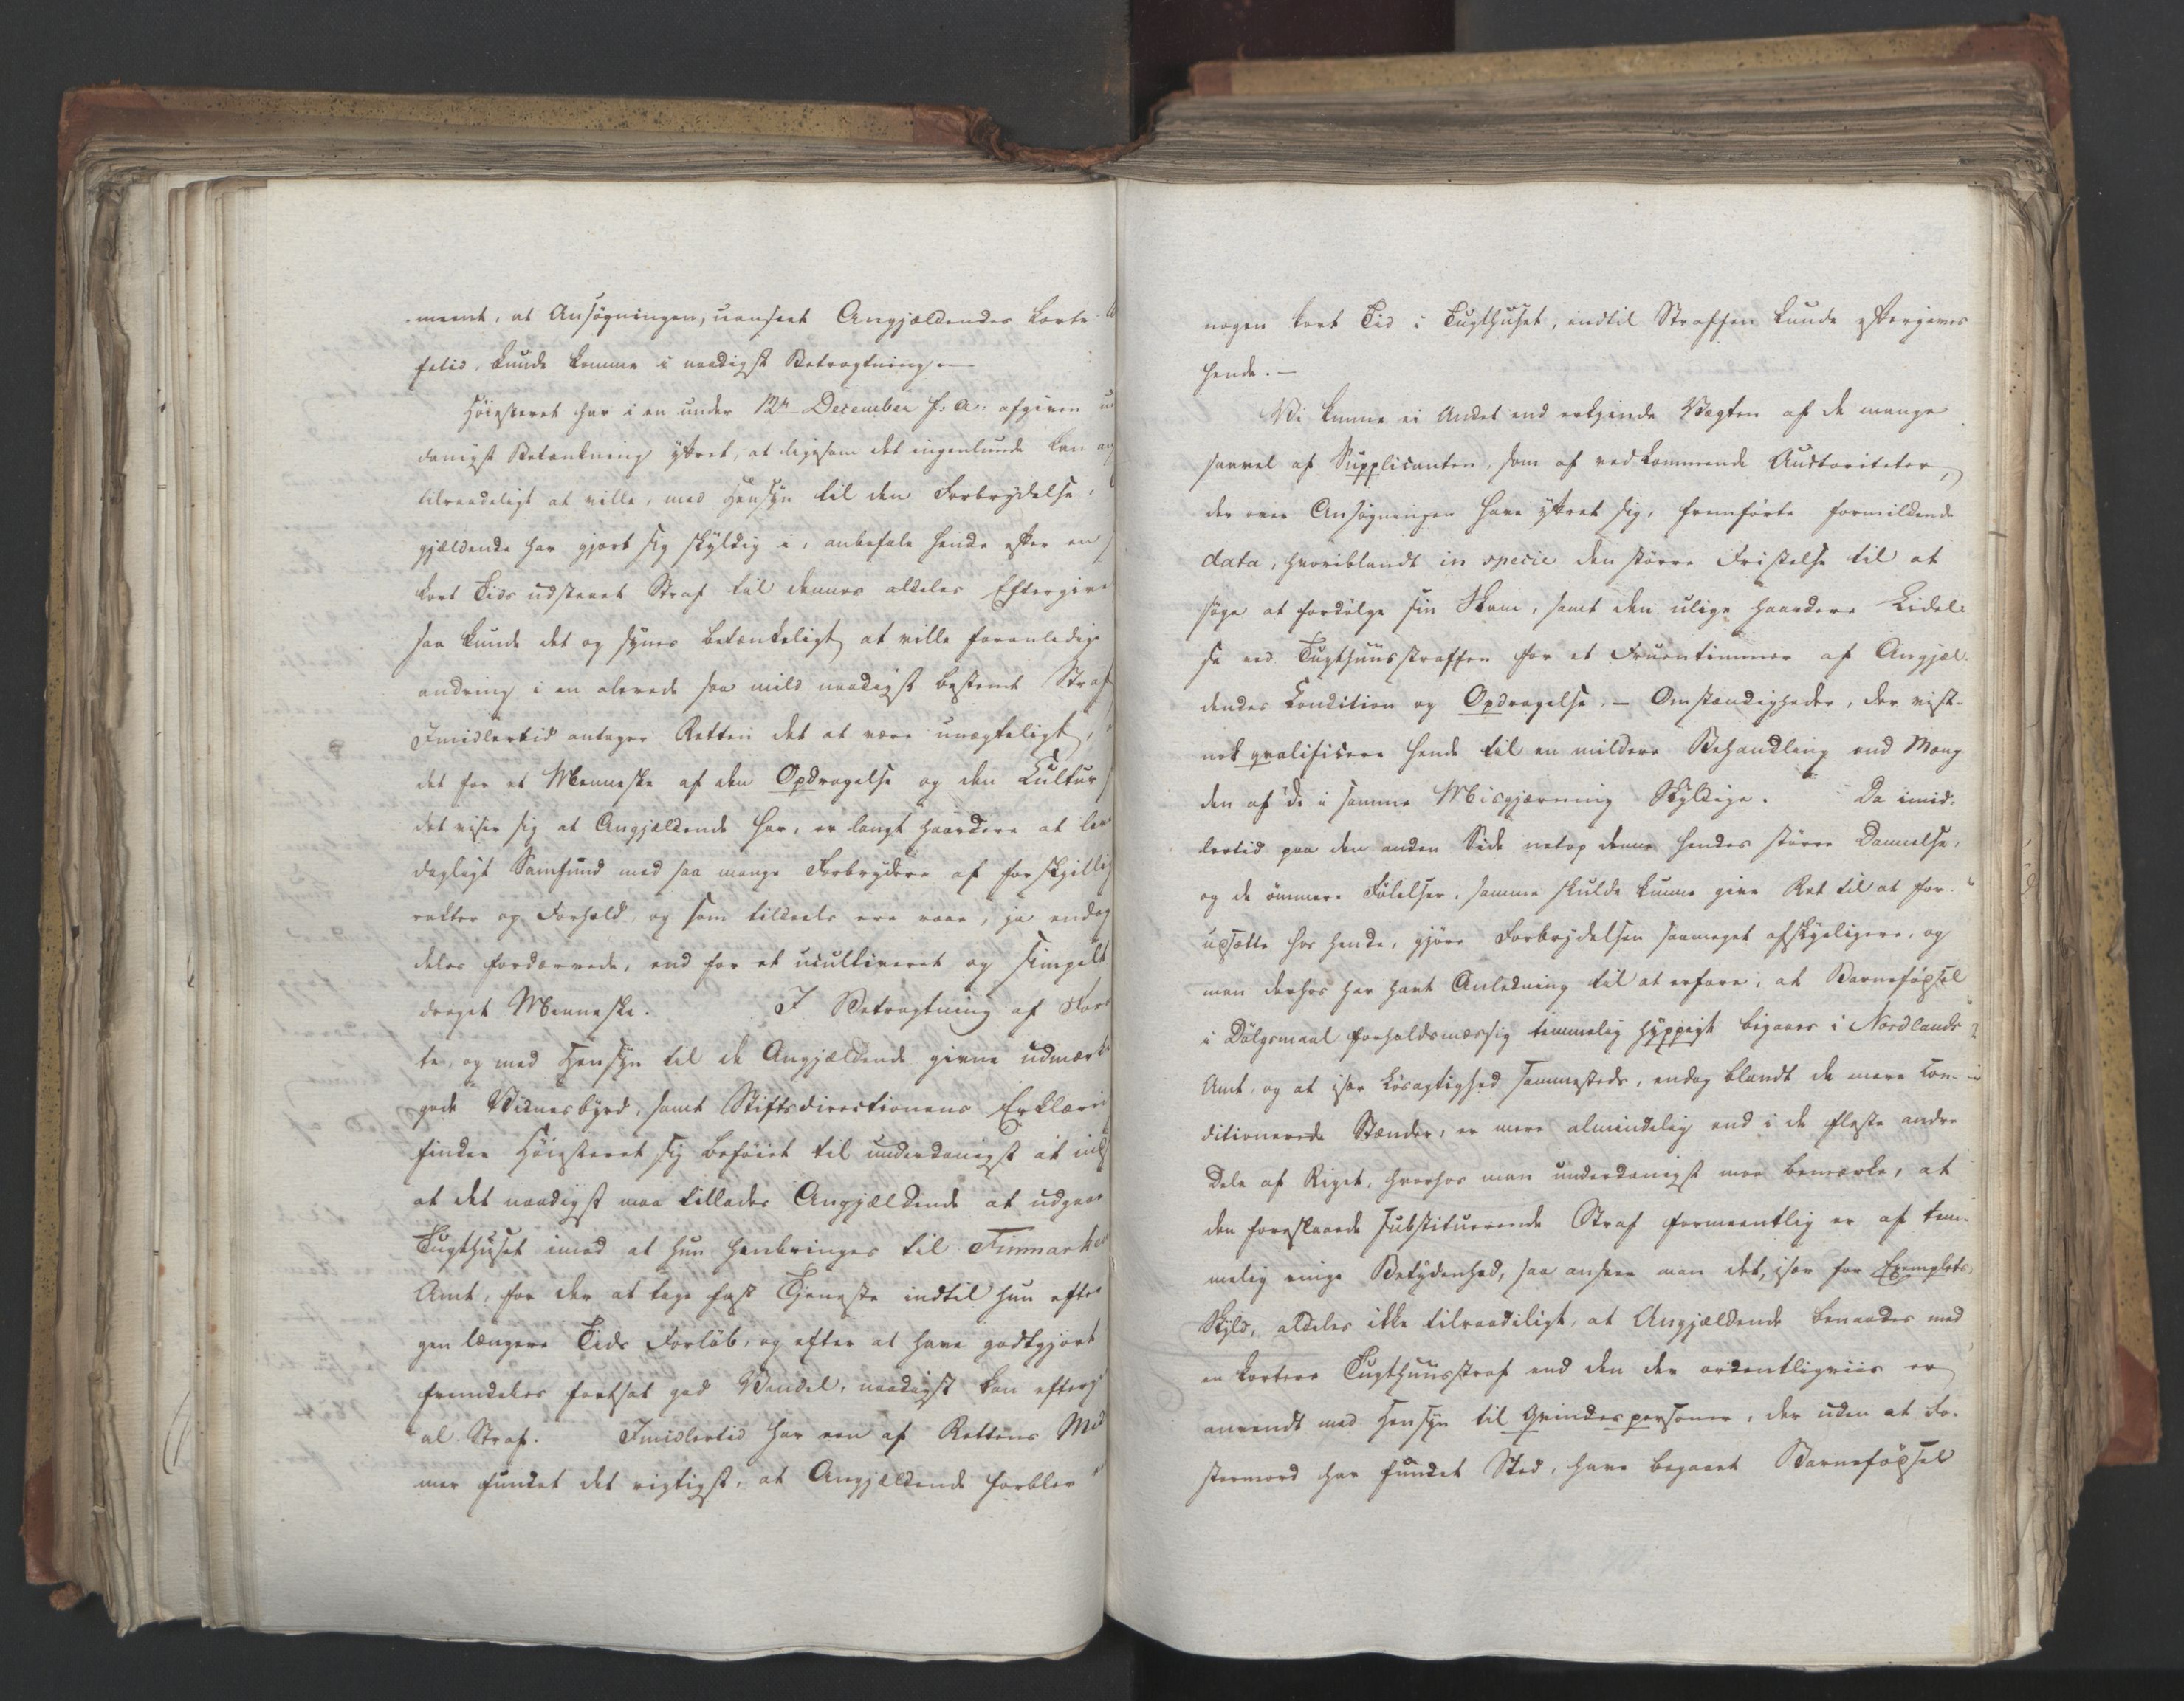 meent, at Ansøgningen, uanseet Angjældendes korte
felid, kunde komme i naadigst Betragtning.—
Høiesteret har i en under 12te December f: A: afgiven u
danigst Betænkning yttret, at ligesom det ingenlunde kan an
tilraadeligt at ville, med Hensyn til den Forbrydelse,
gjældende har gjort sig skyldig i, anbefale hende efter en
kort Tids udstaaet Straf til dennes aldeles Eftergive
saa kunde det og synes betænkeligt at ville foranledige
andring i en allerede saa mild naadigst bestemt Straf
Imidlertid antager Retten det at være unægteligt,
det for et Menneske af den Opdragelse og den Kultur
det viser sig at Angjældende har, er langt haardere at leve
dagligt Samfund med saa mange Forbrydere af forskjellig
rakter og Forhold og som tildeels ere raae, ja endog
deles fordærvede, end for et ucultiveret og simpelt
draget Menneske. I Betragtning af For
te, og med Hensyn til de Angjældende givne udmærke
gode Vidnesbyrd, samt Stiftsdirectionens Erklæri
finder Høiesteret sig beføiet til underdanigst at ind
at det naadigst maa tillades Angjældende at udgaae
Tugthuset imod at hun henbringes til Finmarke
Amt, for der at tage fast Tjeneste indtil hun efter
gen længere Tids Forløb, og efter at have godtgjort
fremdeles fortsat god Vandel, naadigst kan efterg
al Straf. Imidlertid har een af Rettens Med
mer fundet det rigtigst, at Angjældende forblev
nogen kort Tid i Tugthuset, indtil Straffen kunde eftergives
hende.—
Vi kunne ei Andet end erkjende Vægten af de mange
saavel af Supplicanten, som af vedkommende Auctoriteter,
der over Ansøgningen have yttret sig, fremførte formildende
data, hvoriblandt in specie den større Fristelse til at
søge at fordølge sin Skam, samt den ulige haardere Lidel-
se ved Tugthuusstraffen for et Fruentimmer af Angjæl-
dendes Condition og Opdragelse,— Omstændigheder, der vist-
nok qvalificere hende til en mildere Behandling end Mang
den af de i samme Misgjærning Skyldige. Da imid-
lertid paa den anden Side netop denne hendes større Dannelse,
og de ømmere Følelser, samme skulde kunne give Ret til at for-
udsætte hos hende, gjøre Forbrydelsen saameget afskyeligere, og
man derhos har havt Anledning til at erfare, at Barnefødsel
i Dølgsmaal forholdsmæssig temmelig hyppigt begaaes i Nordlands
Amt, og at især Løsagtighed sammesteds, endog blandt de mere Con-
ditionerede Stænder, er mere almindelig end i de fleste andre
Dele af Riget, hvorhos man underdanigst maa bemærke, at
den foreslaaede substituerende Straf formeentlig er af tem-
melig ringe Betydenhed, saa ansees man det, især for Exemplets
Skyld, aldeles ikke tilraadeligt, at Angjældende benaades med
en kortere Tugthuusstraf end den der ordentligviis er
anvendt med Hensyn til Qvindespersoner, der uden at Fo-
stermord har fundet Sted, have begaaet Barnefødsel